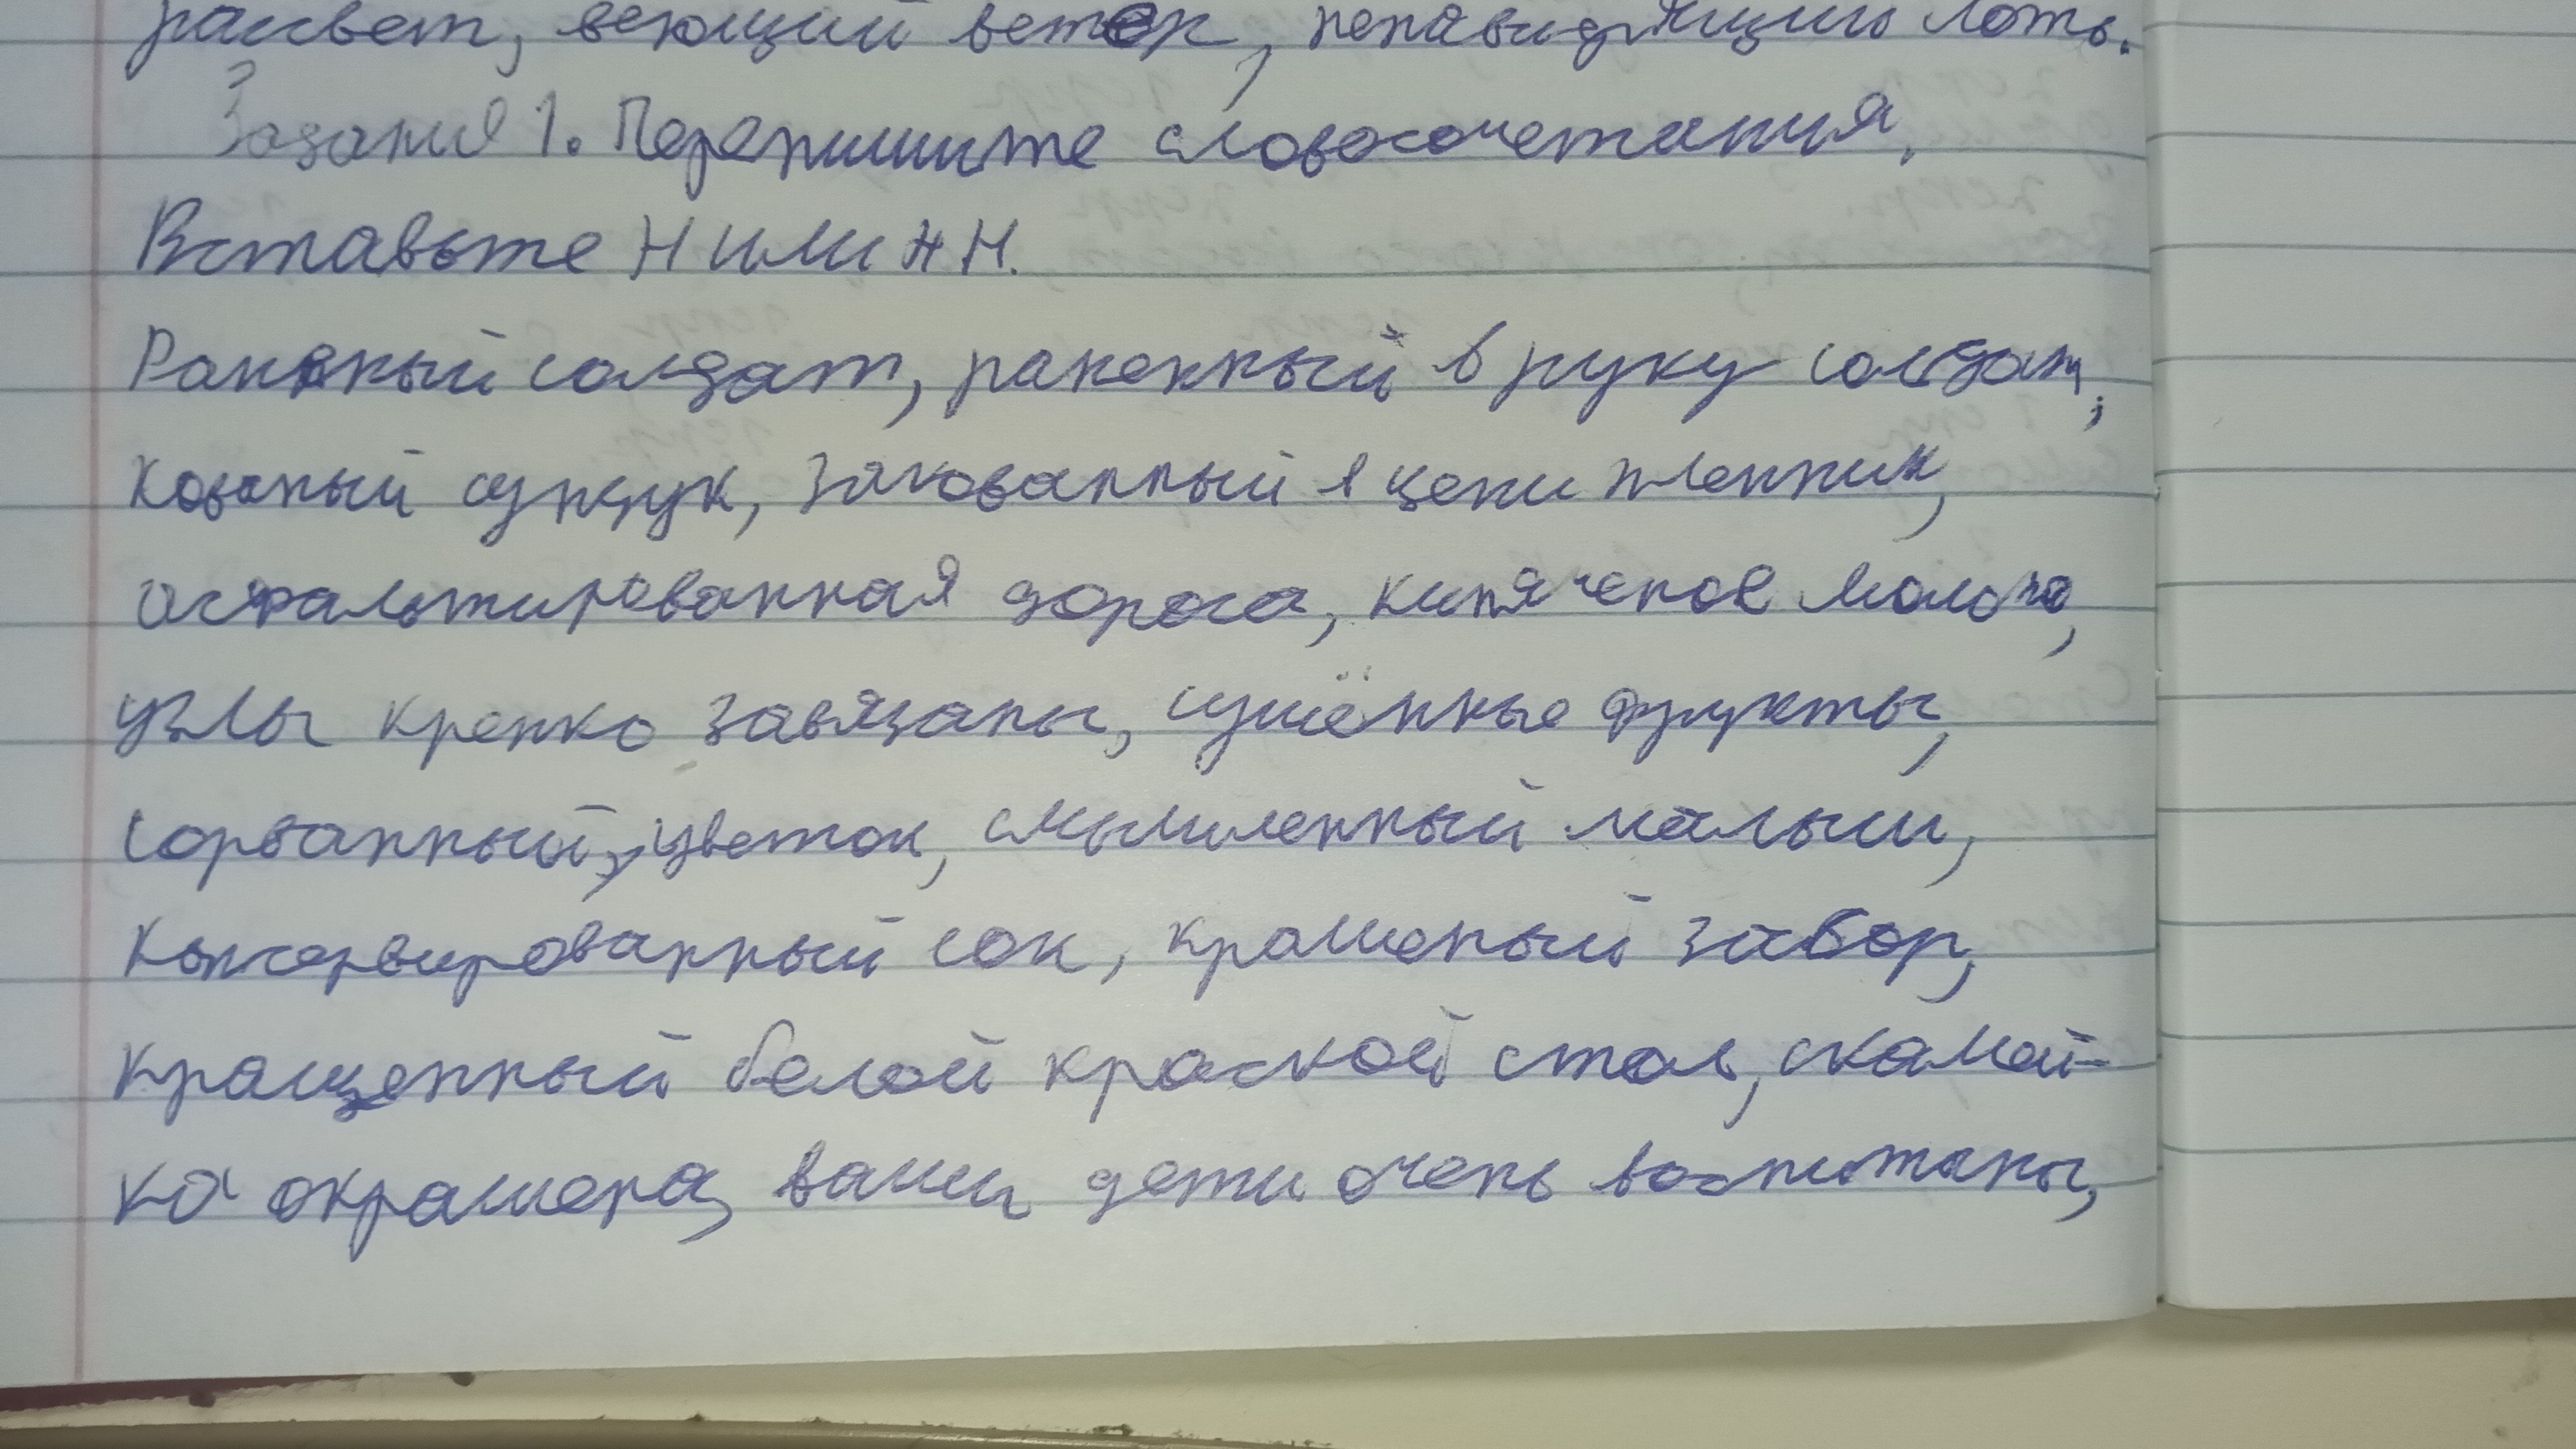 рассвет, веющий ветер, ненавидящий лож.
Задание 1. Перепишите словосочетания,
Вставьте Н или НН.
Раненый солдат, раненный в руку солдат,
кованый сундук, закованный в цепи пленник,
асфальтированная дорога, кипяченое молоко,
узлы крепко завязаны, сушённые фрукты,
сорванный, цветок, смышленный малыш,
консервированный сок, крашеный забор,
кращенный белой краской стол, скамей-
ка окрашена, ваши дети очень воспитаны,